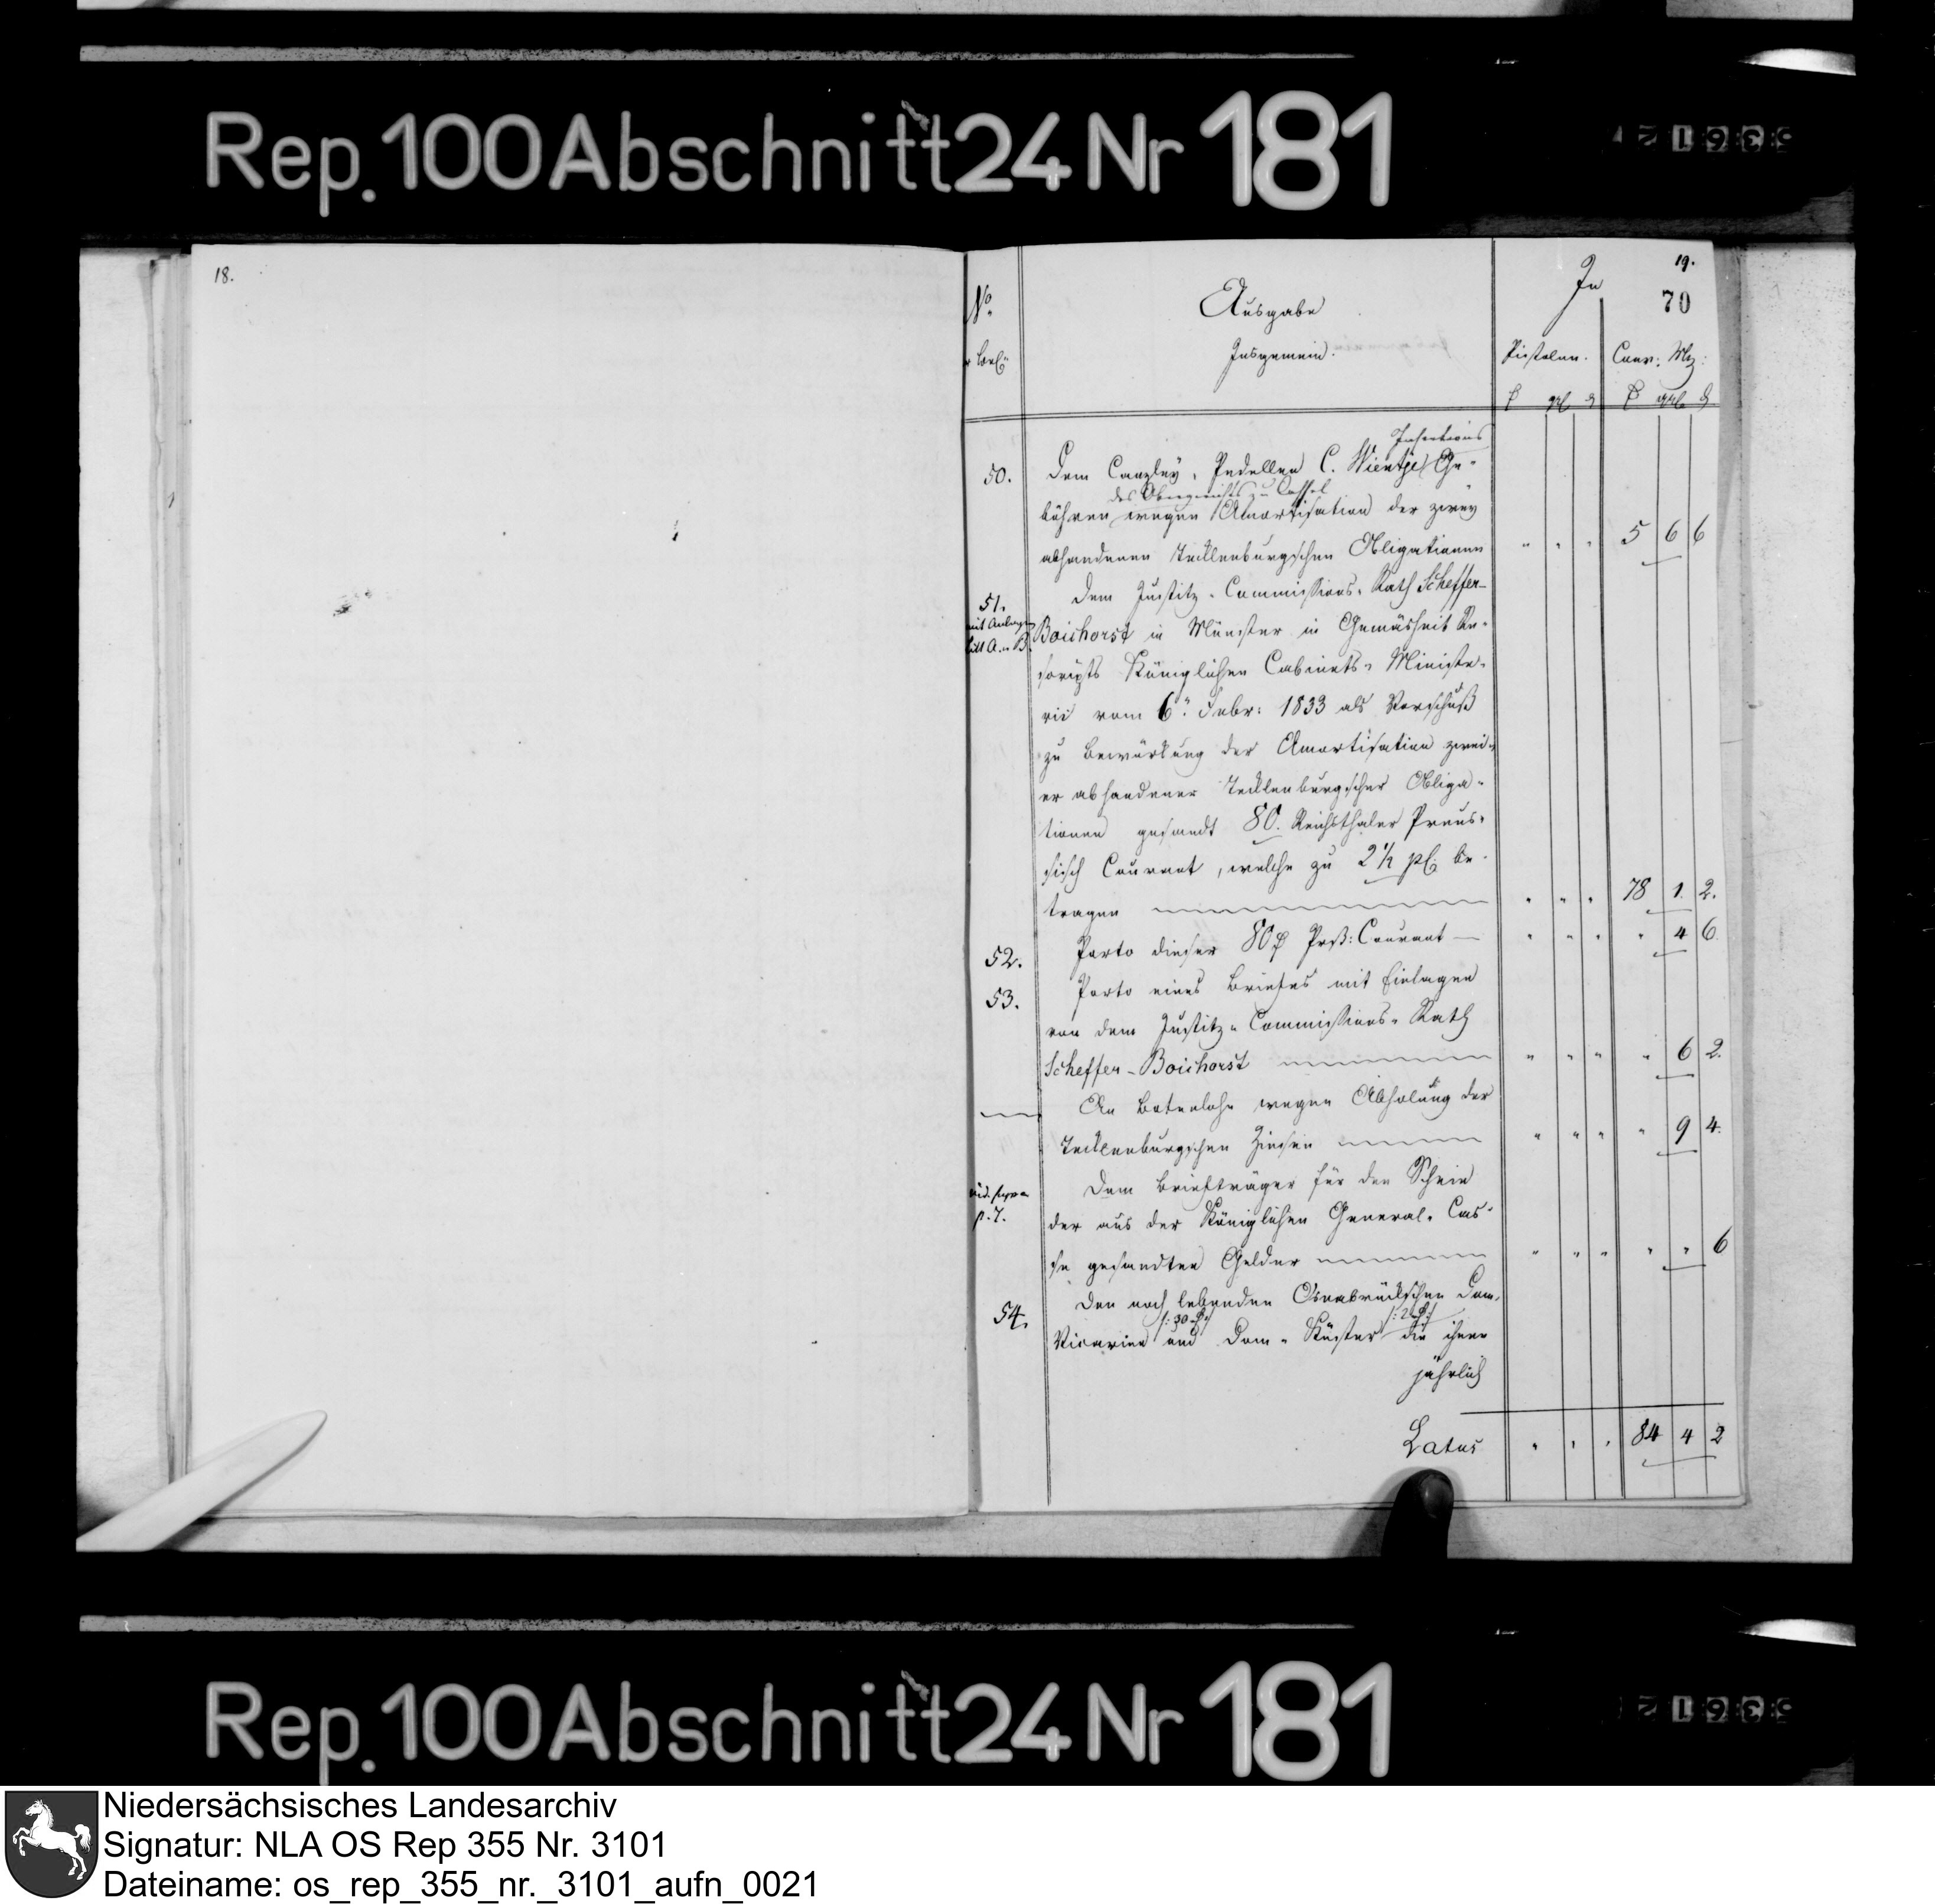 Rep. 100 Abschnitt 24 Nr 181
18.
19.
70
No.
Ausgabe
In
Insgemein.
Pistolen.
Conv: Mz:
50.
Insertions
Dem Canzley-Pedellen C. Wientje Ge-
des Obergerichts zu Cassel
bühren wegen Amortisation der zwey
abhandenen Tecklenburgschen Obligationen " " " 5 6 6
51.
mit Anlagen
Litt A. u B.
Dem Justitz-Commissions-Rath Scheffer-
Boichorst in Münster in Gemäsheit Re-
scripts Königlichen Cabinets-Ministe-
rii vom 6ⁿ Febr: 1833 als Vorschuß
zu Bewürkung der Amortisation zwei-
er abhandener Tecklenburgscher Obliga-
tionen gesandt 80. Reichsthaler Preus-
sisch Courant, welche zu 2½ pC. be-
tragen " " " 78 1. 2.
52. Porto dieser 80 Prß: Courant — " " " " 4 6.
53. Porto eines Briefes mit Einlagen
von dem Justitz-Commissions-Rath
Scheffer-Boichorst " " " " 6 2.
An Botenlohn wegen Abholung der
Tecklenburgschen Zinsen " " " " 9 4.
vid. supra
p. 7.
Dem Briefträger für den Schein
der aus der Königlichen General-Cas-
se gesandten Gelder " " " " " 6
54. Den noch lebenden Osnabrückschen Dom-
Vicarien und Dom-Küster die ihnen
jährlich
Latus " " " 84 4 2
Rep. 100 Abschnitt 24 Nr 181
Niedersächsisches Landesarchiv
Signatur: NLA OS Rep 355 Nr. 3101
Dateiname: os_rep_355_nr._3101_aufn_0021